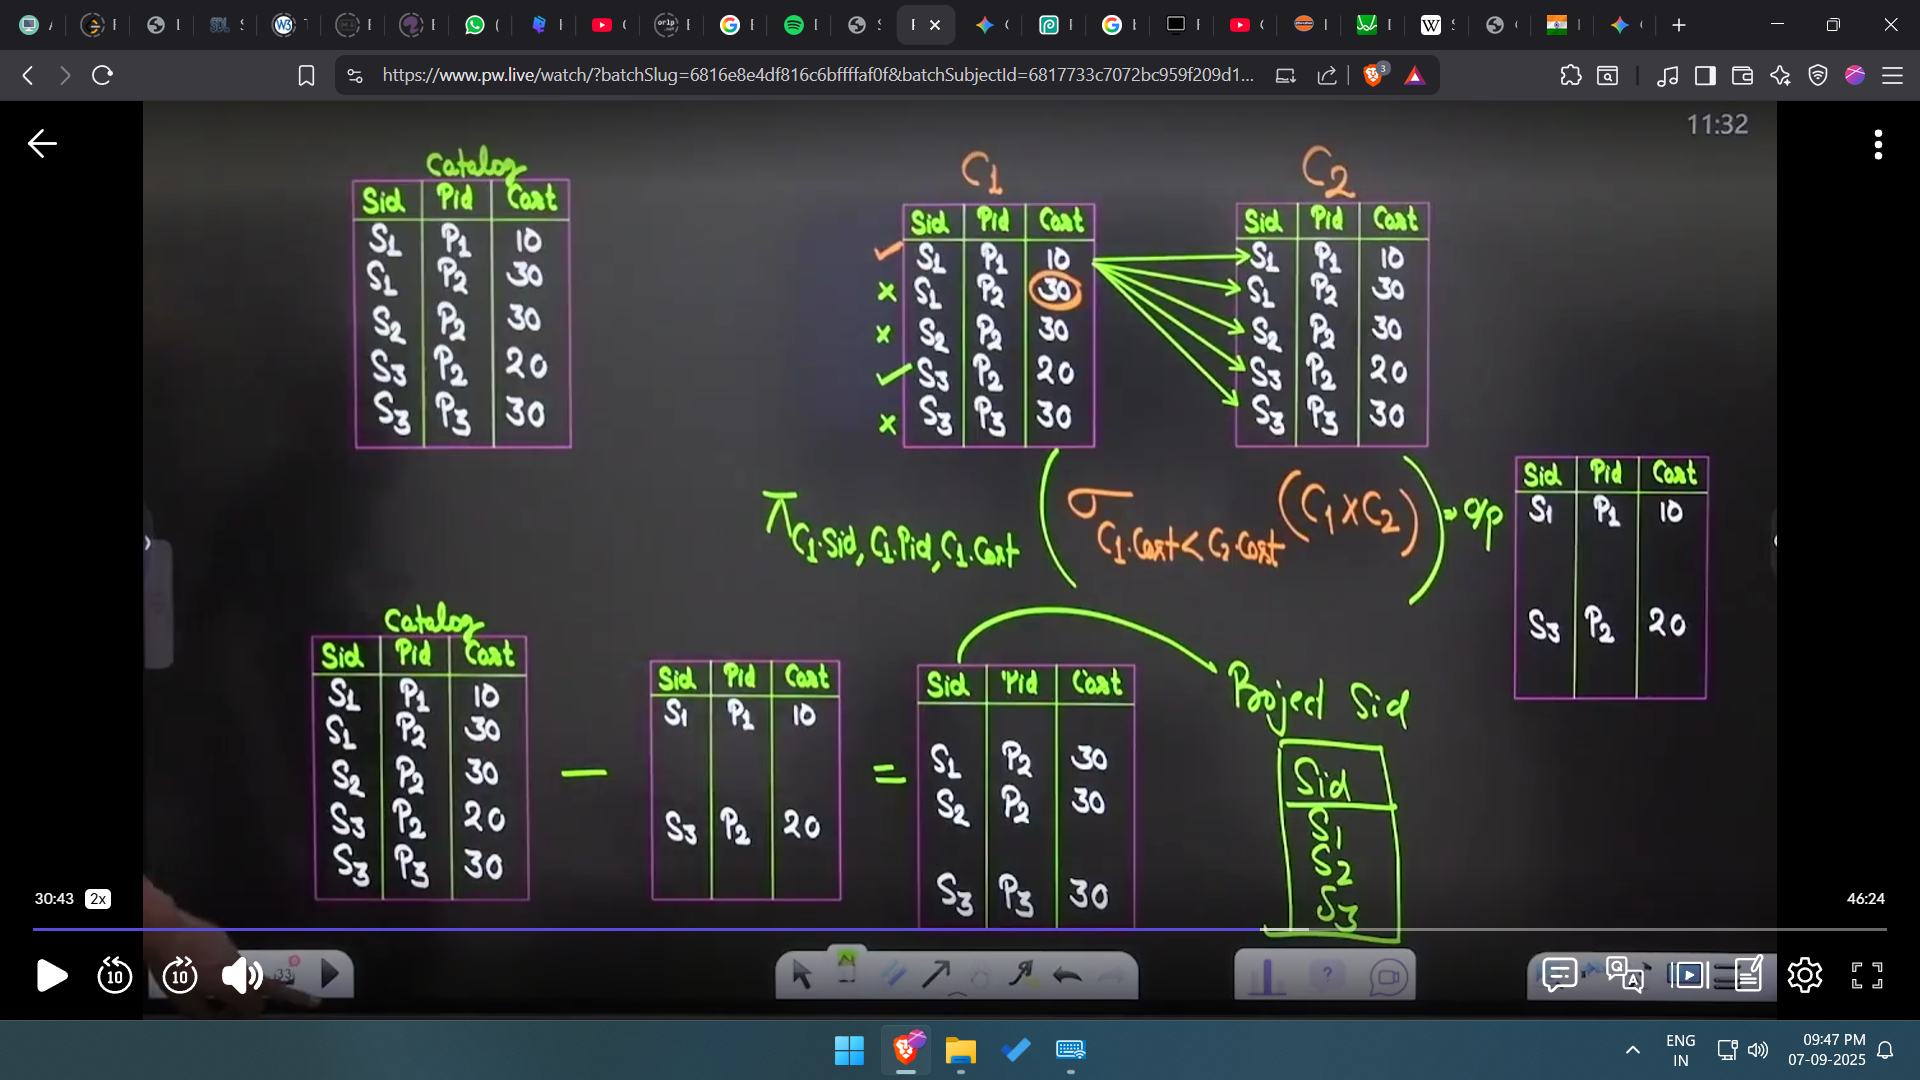 https://www.pw.live/watch/?batchSlug=6816e8e4df816c6bffffaf0f&batchSubjectId=6817733c7072bc959f209d1...
3
11:32
Catalog
Sid Pid Cost
S1 P1 10
S1 P2 30
S2 P2 30
S3 P2 20
S3 P3 30
C1
Sid Pid Cost
S1 P1 10
S1 P2 30
S2 P2 30
S3 P2 20
S3 P3 30
C2
Sid Pid Cost
S1 P1 10
S1 P2 30
S2 P2 30
S3 P2 20
S3 P3 30
π C1.Sid, C1.Pid, C1.Cost (σ C1.Cost < C2.Cost (C1 X C2)) = o/p
Sid Pid Cost
S1 P1 10
S3 P2 20
Catalog
Sid Pid Cost
S1 P1 10
S1 P2 30
S2 P2 30
S3 P2 20
S3 P3 30
−
Sid Pid Cost
S1 P1 10
S3 P2 20
=
Sid Pid Cost
S1 P2 30
S2 P2 30
S3 P3 30
Project Sid
Sid
S1
S2
S3
30:43 2x
46:24
10 10
33
ENG
IN
09:47 PM
07-09-2025